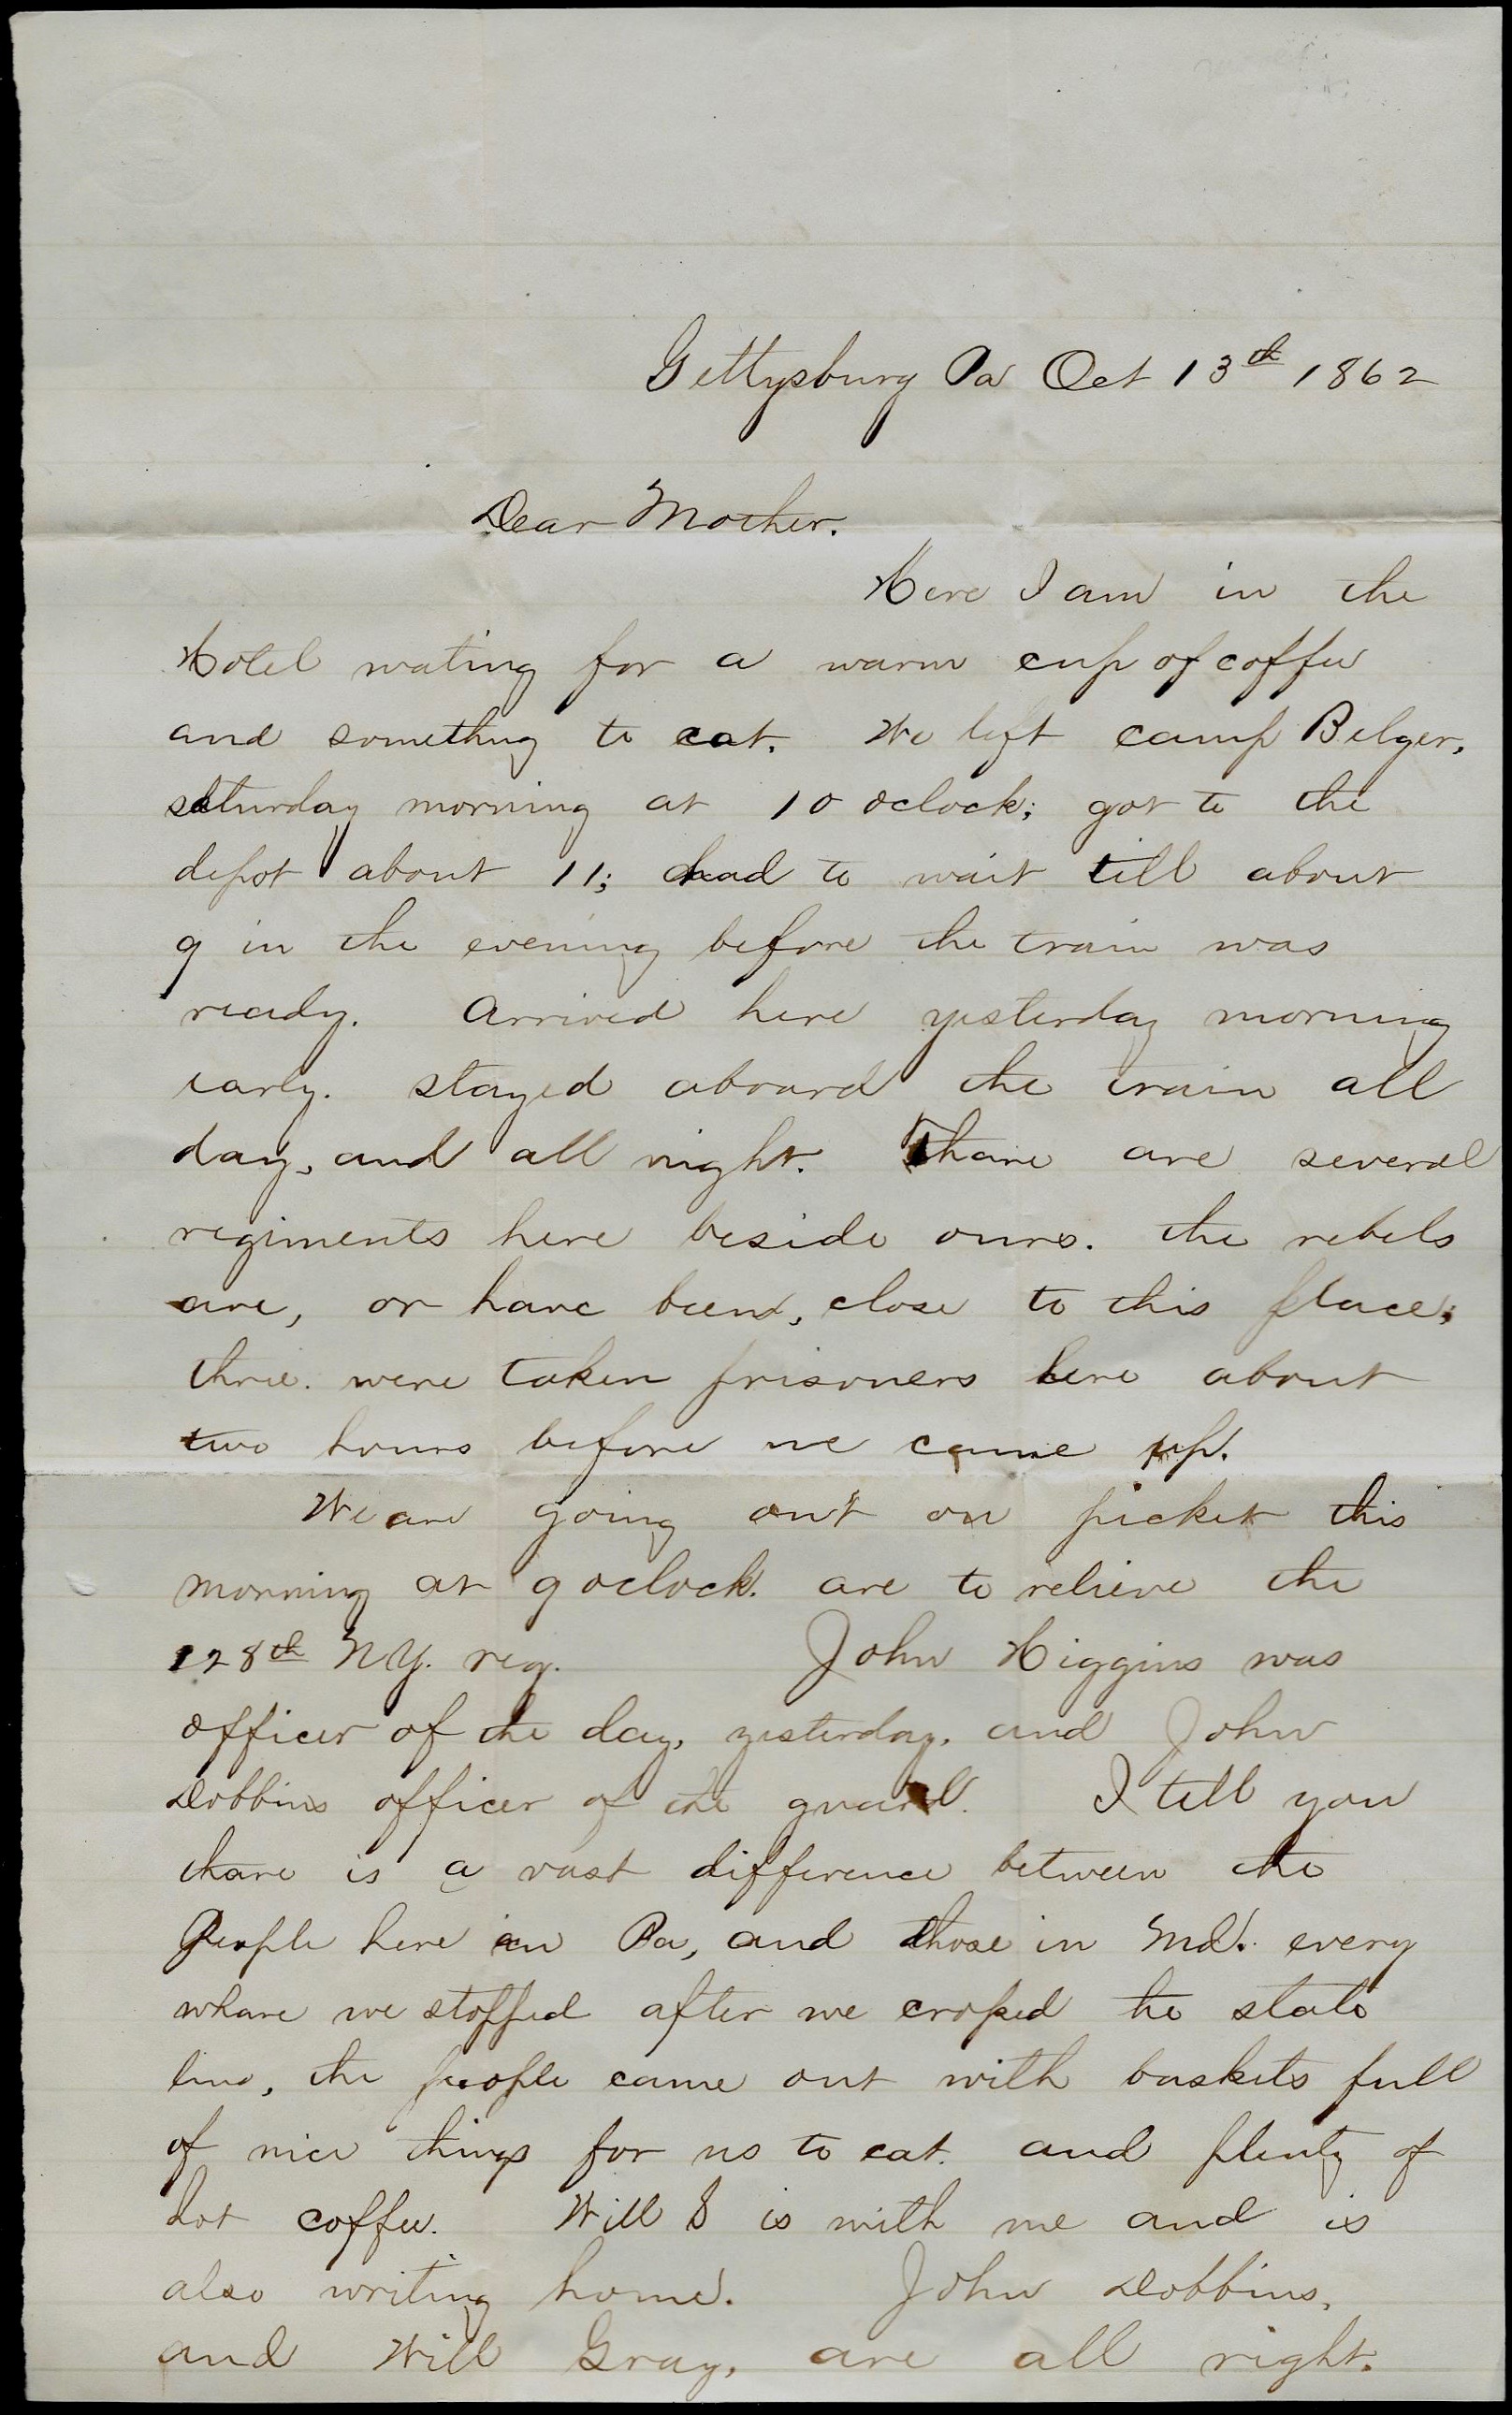 Gettysburg Pa Oct 13th 1862
Dear Mother.
Here I am in the
Hotel wating for a warm cup of coffee
and something to eat. We left camp Belger,
saturday morning at 10 oclock; got to the
depot about 11; had to wait till about
9 in the evening before the train was
ready. Arrived here yesterday morning
early. stayed aboard the train all
day, and all night. Thare are several
regiments here beside ours. the rebels
are, or have been, close to this place;
three were taken prisoners here about
two hours before we came up.
We are going out on picket this
morning at 9 oclock. are to relieve the
128th N.Y. reg. John Higgins was
officer of the day, yesterday, and John
Dobbins officer of the guard. I tell you
thare is a vast difference between the
People here in Pa, and those in Md. every
whare we stopped after we crossed the state
line, the people came out with baskets full
of nice things for us to eat. and plenty of
hot coffee. Will S is with me and is
also writing home. John Dobbins,
and Will Gray, are all right.